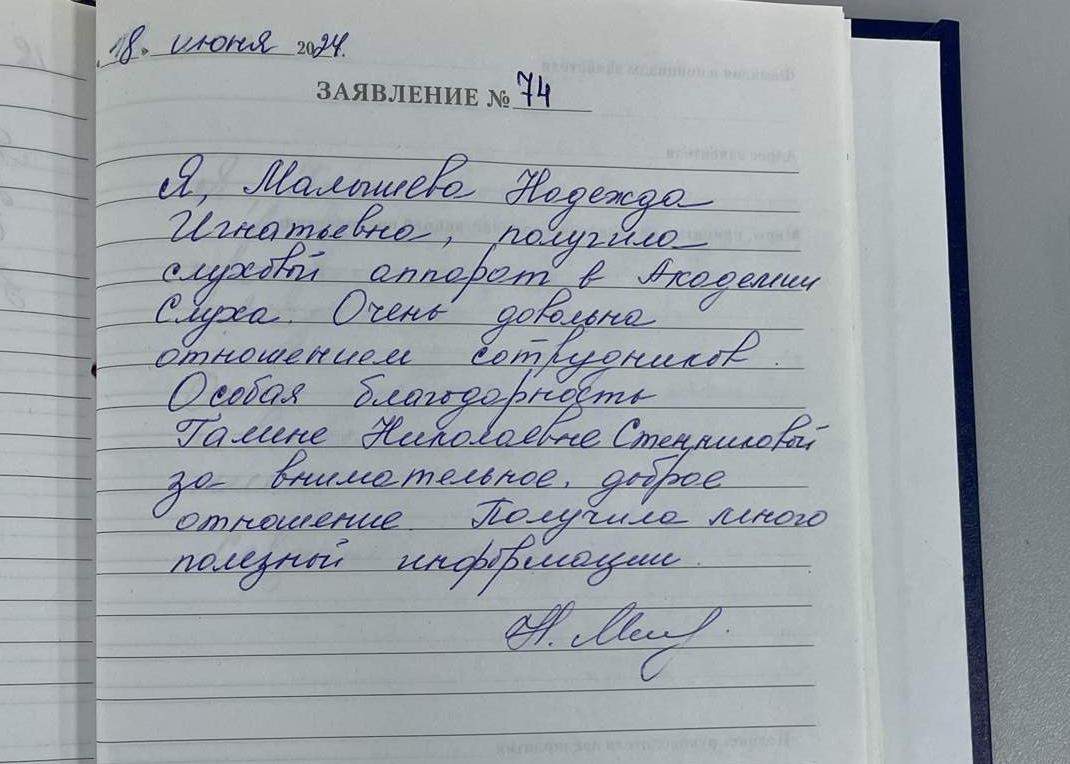 18. июня 2024.
ЗАЯВЛЕНИЕ № 74
Я, Малышева Надежда
Игнатьевна, получила
слуховой аппарат в Академии
Слуха. Очень довольна
отношением сотрудников.
Особая благодарность
Галине Николаевне Стенниковой
за внимательное, доброе
отношение. Получила много
полезной информации.